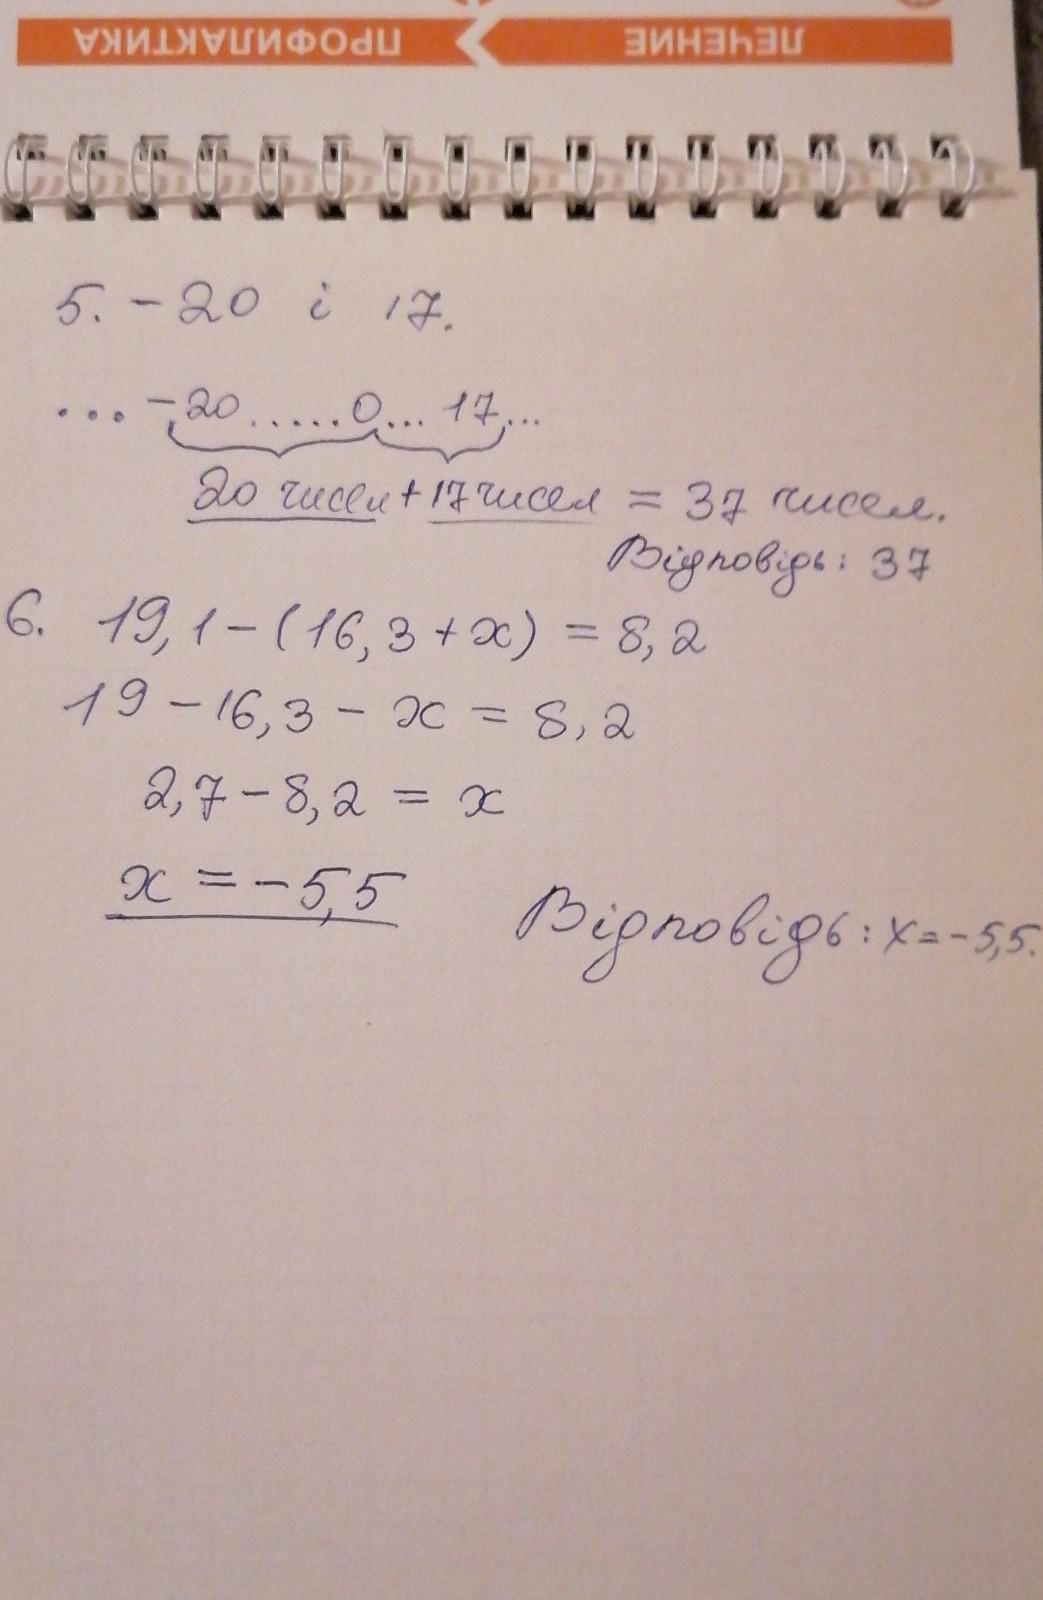 ПРОФИЛАКТИКА ЛЕЧЕНИЕ
5. -20 і 17.
... -20 ......0... 17...
20 чисел + 17 чисел = 37 чисел.
Відповідь: 37
6. 19,1 - (16,3 + x) = 8,2
19 - 16,3 - x = 8,2
2,7 - 8,2 = x
x = -5,5
Відповідь: x = -5,5.